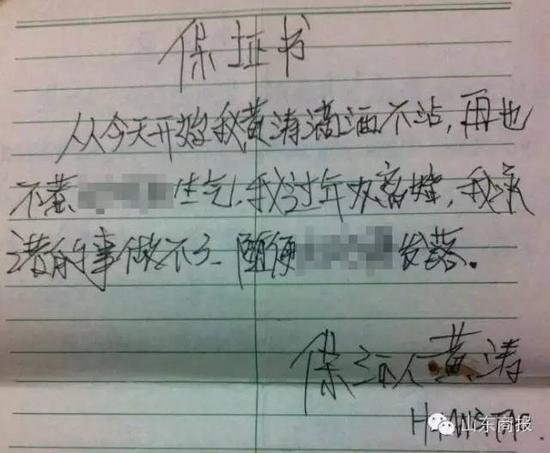 保证书
从今天开始我黄涛滴酒不沾，再也
不惹 生气，我过年 离婚，我承
诺的事做不了 随便 发落。
保证人 黄涛
HUANGTAO
山东商报